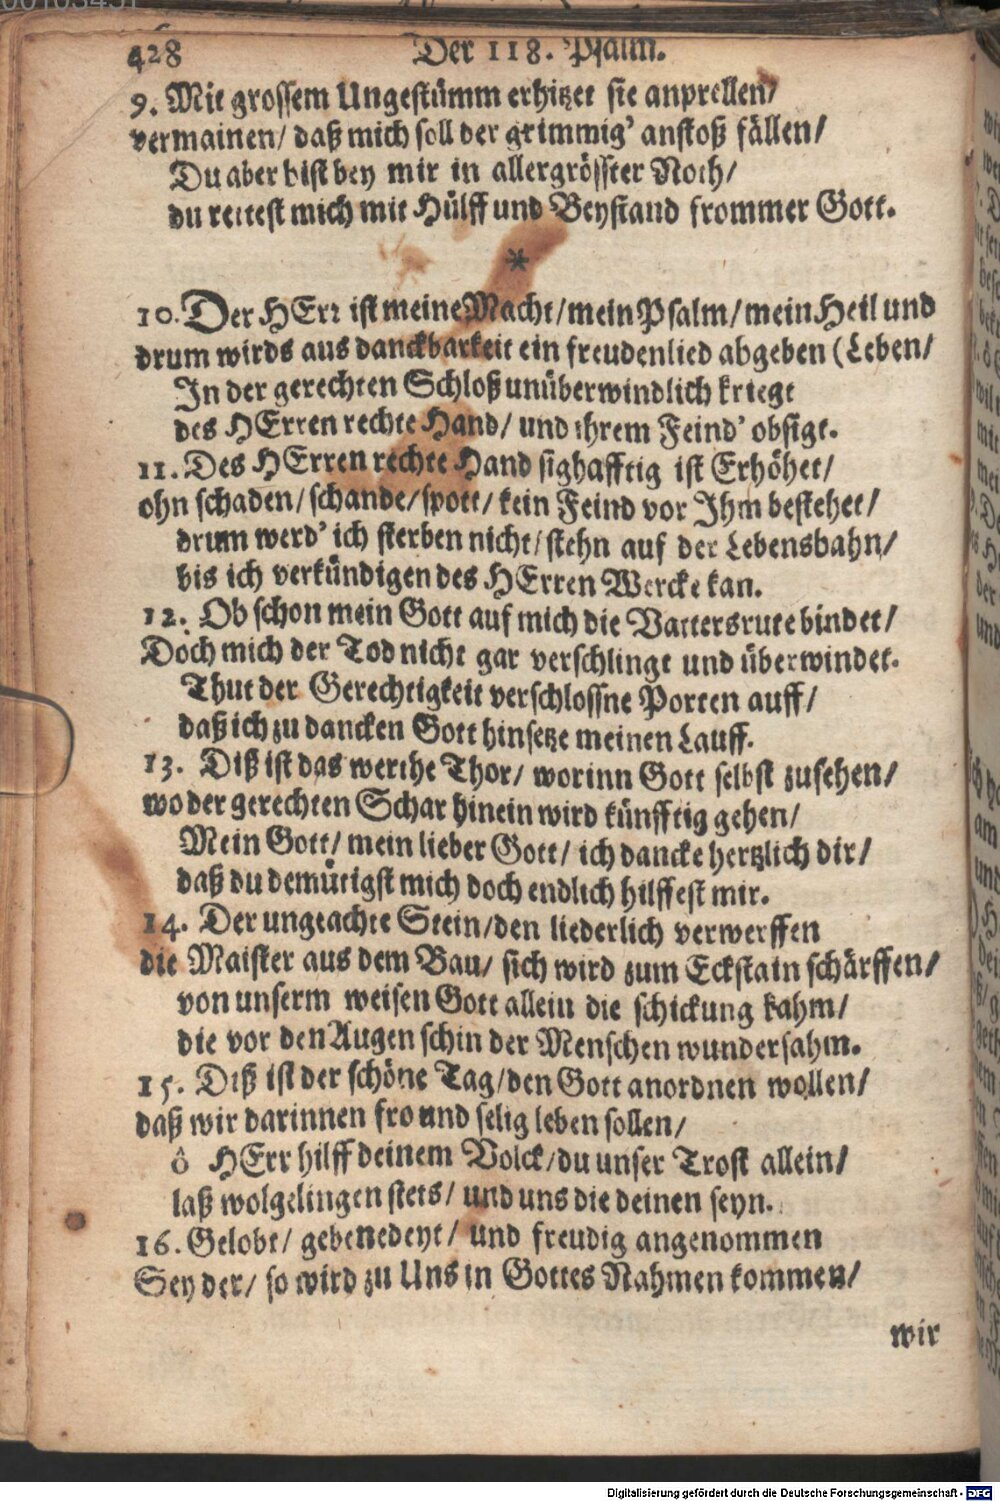 428 Der 118. Psalm.
9. Mit grossem Ungestümm erhitzet sie anprellen/
vermainen/ daß mich soll der grimmig' anstoß fällen/
Du aber bist bey mir in allergrösster Noth/
du rettest mich mit Hülff und Beystand frommer Gott.
*
10. Der HErr ist meine Macht/ mein Psalm/ mein Heil und
drum wirds aus danckbarkeit ein freudenlied abgeben (Leben/
In der gerechten Schloß unüberwindlich kriegt
des HErren rechte Hand/ und ihrem Feind' obsigt.
11. Des HErren rechte Hand sighafftig ist Erhöhet/
ohn schaden/ schande/ spott/ kein Feind vor Ihm bestehet/
drum werd' ich sterben nicht/ stehn auf der Lebensbahn/
bis ich verkündigen des HErren Wercke kan.
12. Ob schon mein Gott auf mich die Vattersrute bindet/
Doch mich der Tod nicht gar verschlingt und überwindet.
Thut der Gerechtigkeit verschlossne Porten auff/
daß ich zu dancken Gott hinsetze meinen Lauff.
13. Diß ist das werthe Thor/ worinn Gott selbst zusehen/
wo der gerechten Schar hinein wird künfftig gehen/
Mein Gott/ mein lieber Gott/ ich dancke hertzlich dir/
daß du demütigst mich doch endlich hilffest mir.
14. Der ungeachte Stein/ den liederlich verwerffen
die Maister aus dem Bau/ sich wird zum Eckstain schärffen/
von unserm weisen Gott allein die schickung kahm/
die vor den Augen schin der Menschen wundersahm.
15. Diß ist der schöne Tag/ den Gott anordnen wollen/
daß wir darinnen fro und selig leben sollen/
ô HErr hilff deinem Volck/ du unser Trost allein/
laß wolgelingen stets/ und uns die deinen seyn.
16. Gelobt/ gebenedeyt/ und freudig angenommen
Sey der/ so wird zu Uns in Gottes Nahmen kommen/
wir
Digitalisierung gefördert durch die Deutsche Forschungsgemeinschaft - DFG